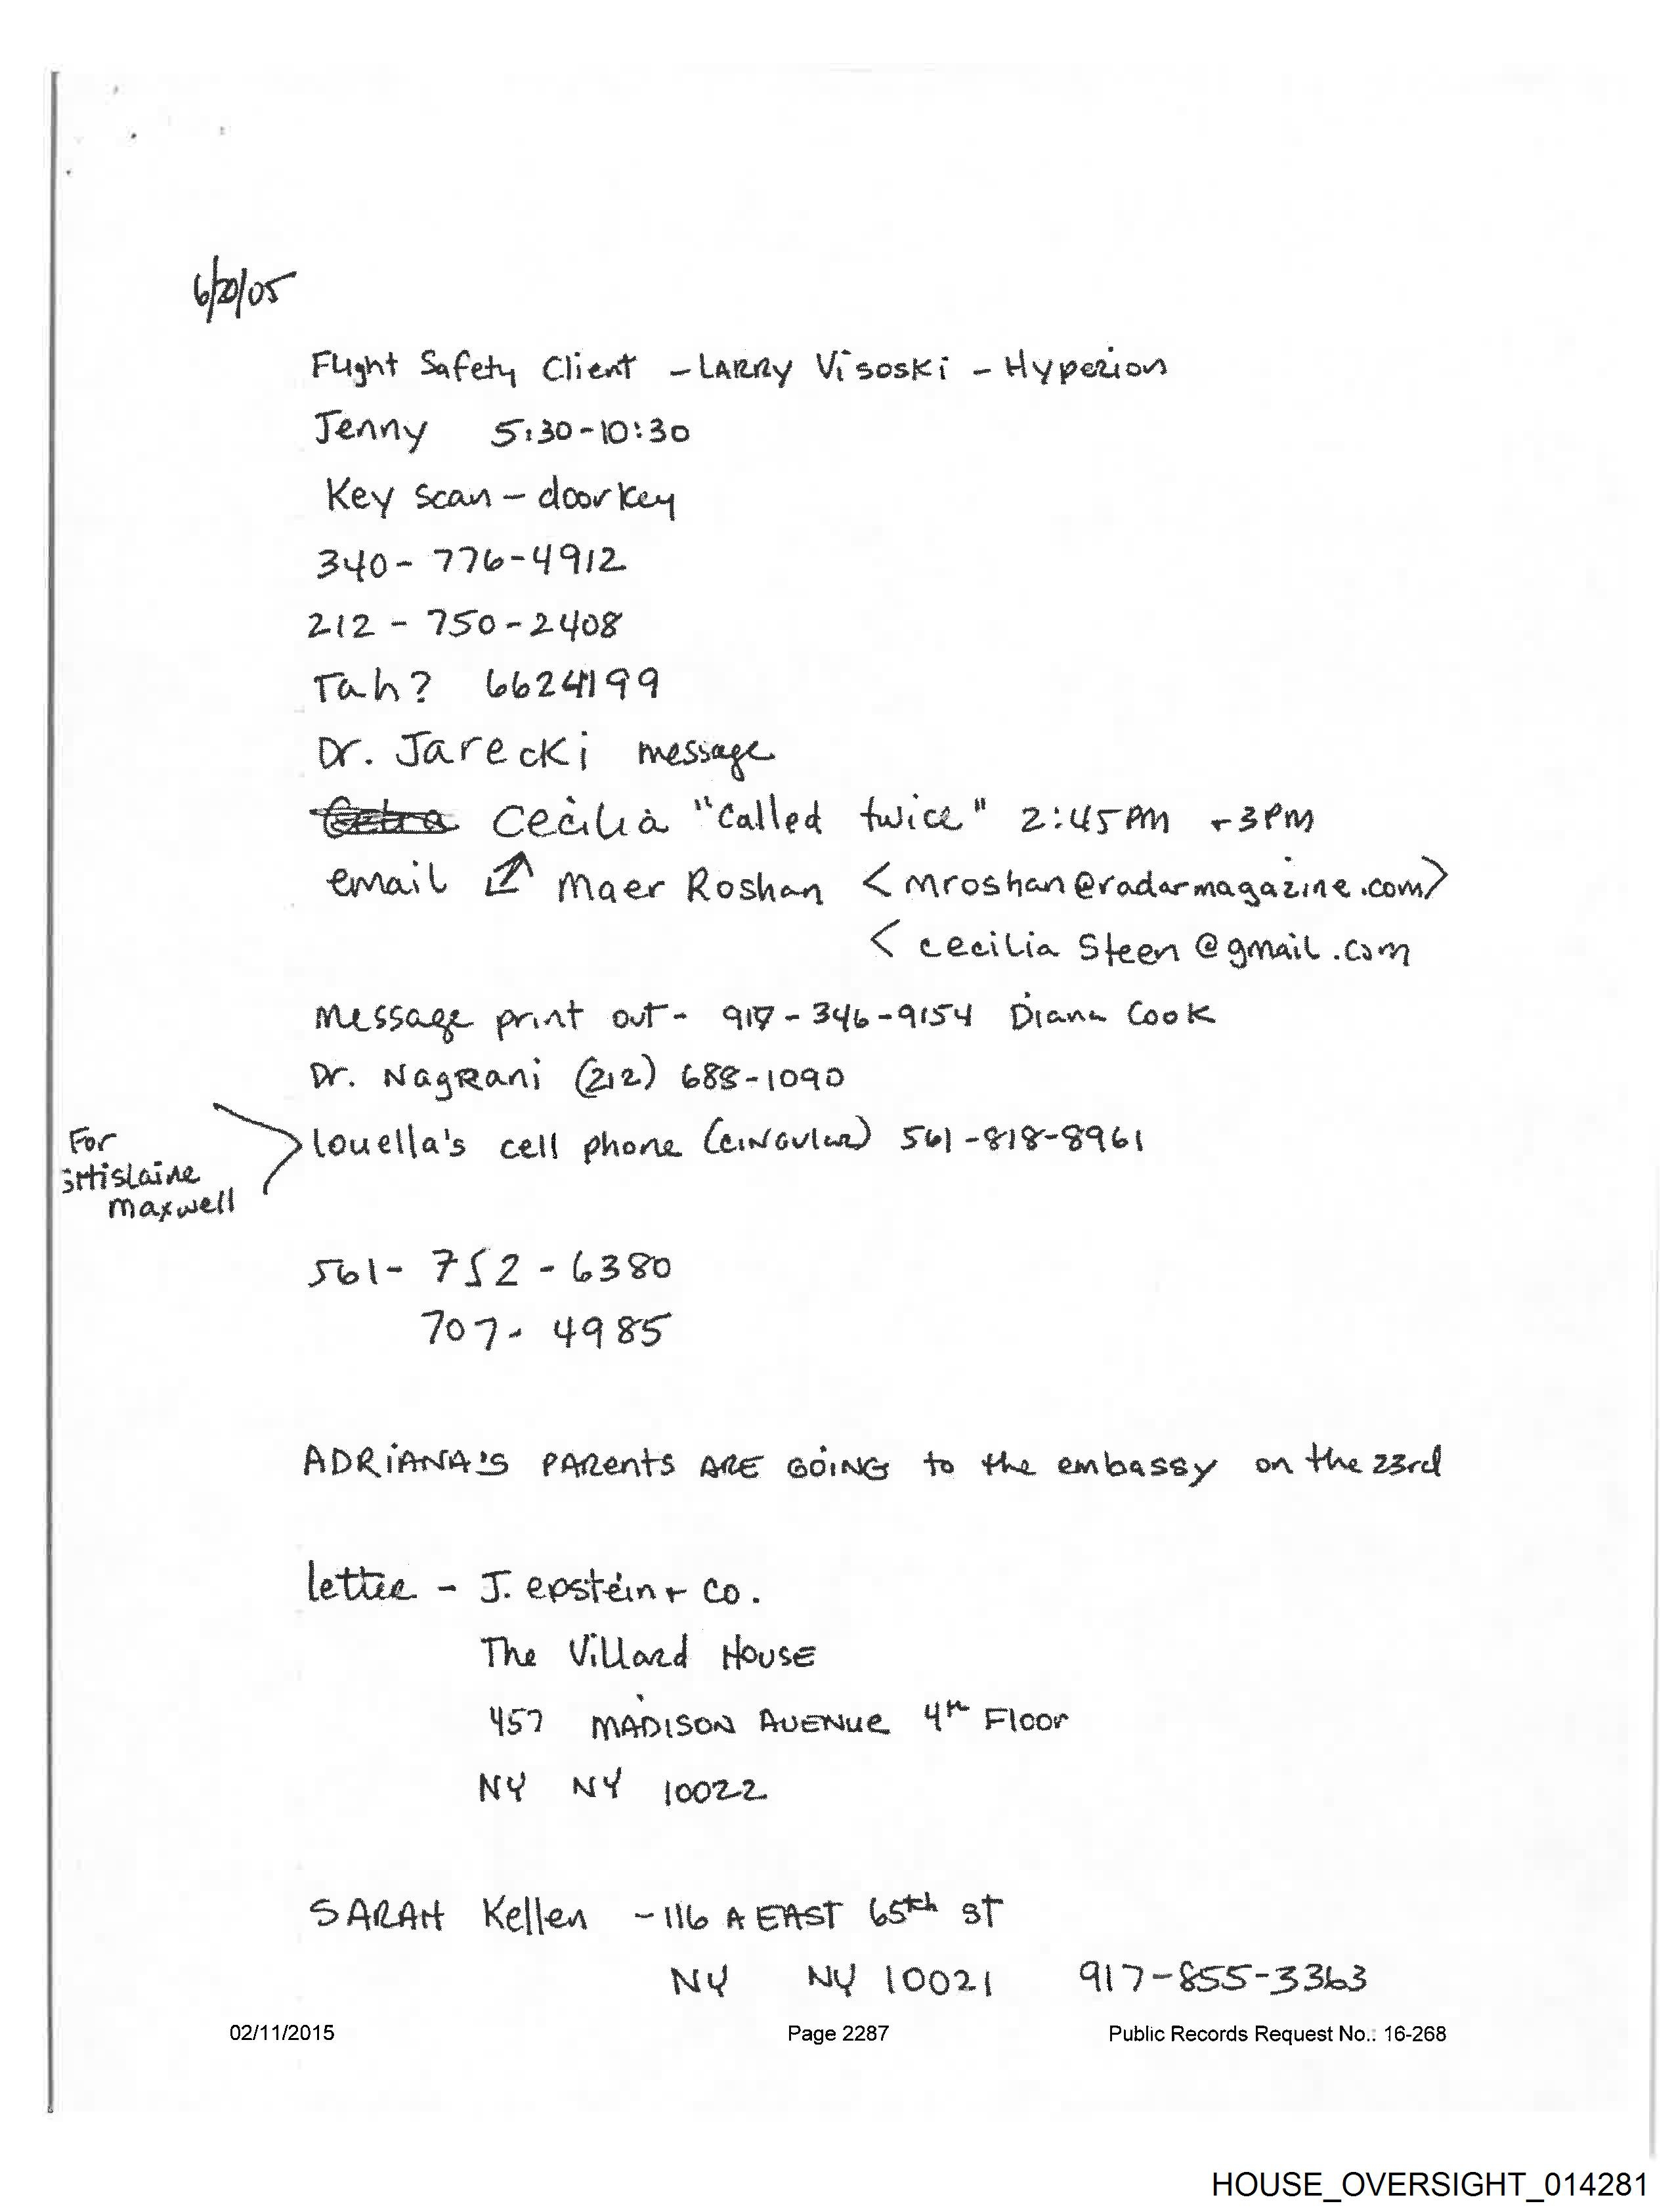 6/20/05
Flight Safety Client - LARRY Visoski - Hyperion
Jenny 5:30-10:30
Key scan - door key
340-776-4912
212-750-2408
Tah? 6624199
Dr. Jarecki message
Cecilia "Called twice" 2:45PM + 3PM
email Maer Roshan <mroshan@radarmagazine.com>
< cecilia Steen @gmail.com
Message print out - 917-346-9154 Diana Cook
Dr. NagRani (212) 688-1090
For Ghislaine maxwell > louella's cell phone (cingular) 561-818-8961
561-752-6380
707-4985
ADRIANA'S PARENTS ARE GOING to the embassy on the 23rd
letter - J. epstein + Co.
The Villard House
457 MADISON AVENUE 4th Floor
NY NY 10022
SARAH Kellen - 116 A EAST 65th ST
NY NY 10021 917-855-3363
02/11/2015 Page 2287 Public Records Request No.: 16-268
HOUSE_OVERSIGHT_014281